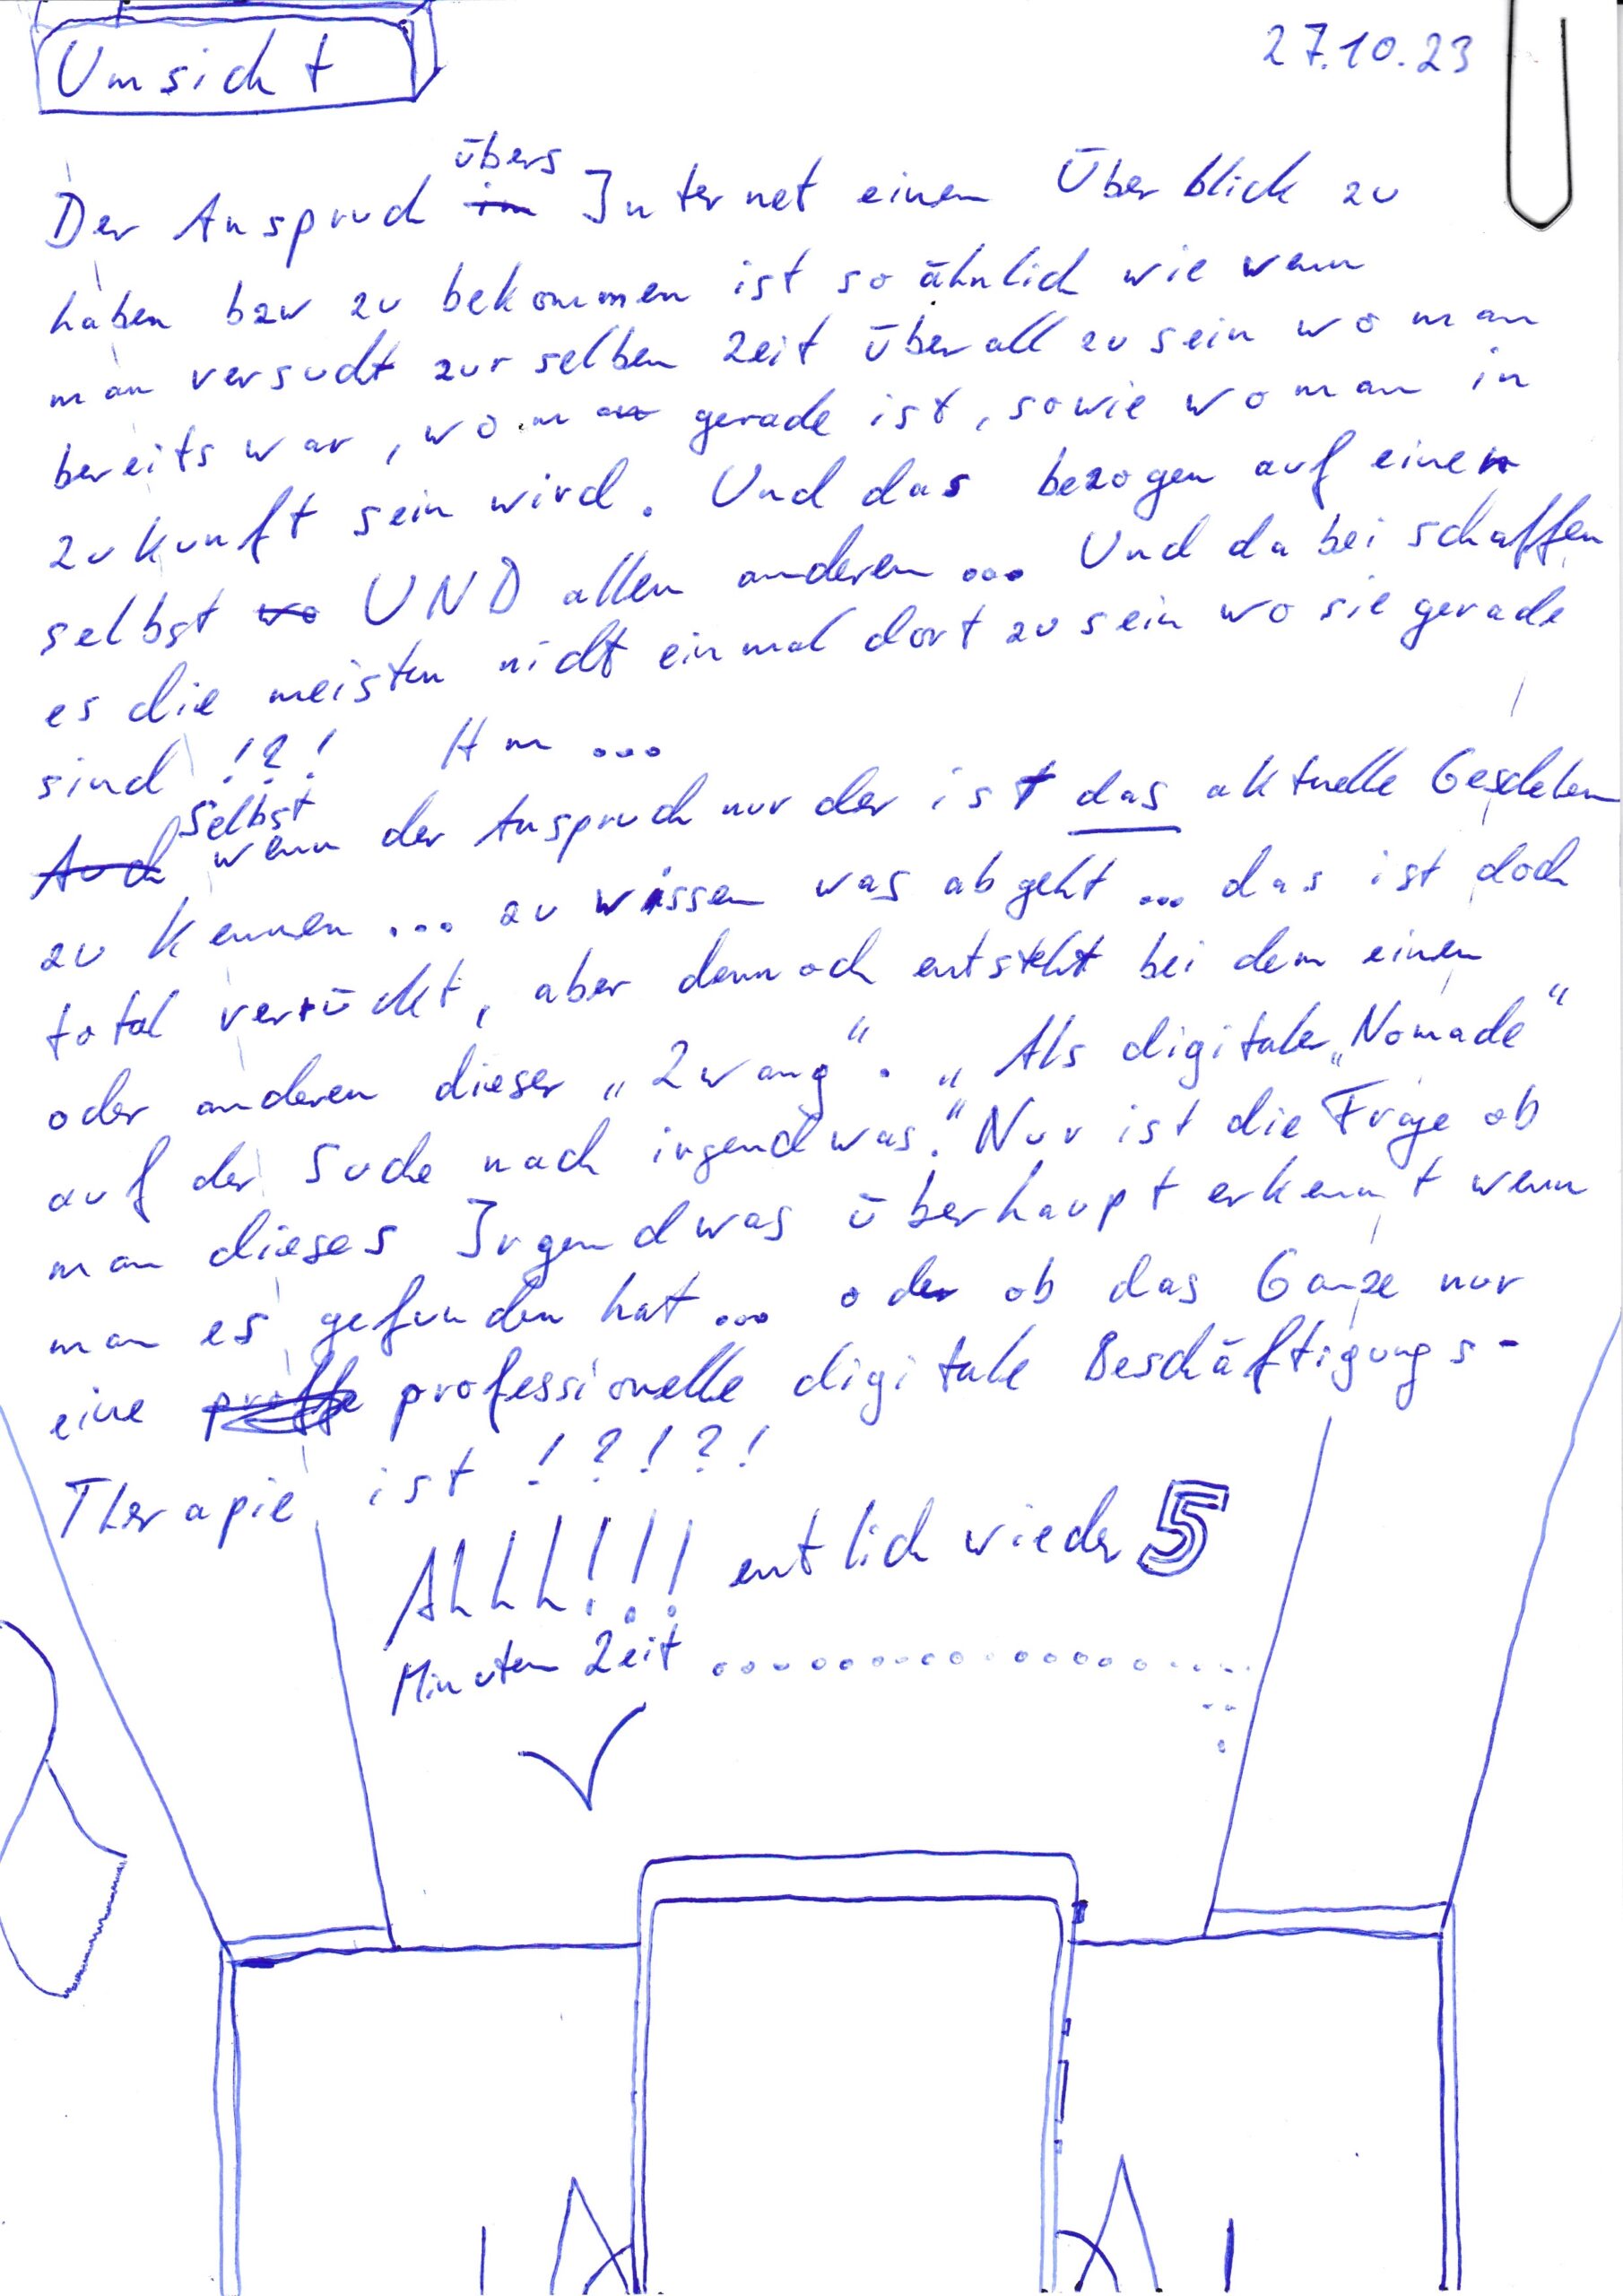 Umsicht
27.10.23
Der Anspruch übers Internet einen Überblick zu
haben bzw zu bekommen ist so ähnlich wie wenn
man versucht zur selben Zeit überall zu sein wo man
bereits war, wo man gerade ist, sowie wo man in
Zukunft sein wird. Und das bezogen auf einen
selbst wo UND allen anderen ... Und dabei schaffen
es die meisten nicht einmal dort zu sein wo sie gerade
sind !?! Hm ...
Auch selbst wenn der Anspruch nur der ist das aktuelle Geschehen
zu kennen ... zu wissen was abgeht ... das ist doch
total verrückt, aber dennoch entsteht bei dem einen
oder anderen dieser „Zwang“. „Als digitaler „Nomade“
auf der Suche nach irgendwas.“ Nur ist die Frage ob
man dieses Irgendwas überhaupt erkennt wenn
man es gefunden hat ... oder ob das Ganze nur
eine professionelle digitale Beschäftigungs-
Therapie ist !?!?!
Ahhh!!! entlich wieder 5
Minuten Zeit ..........................